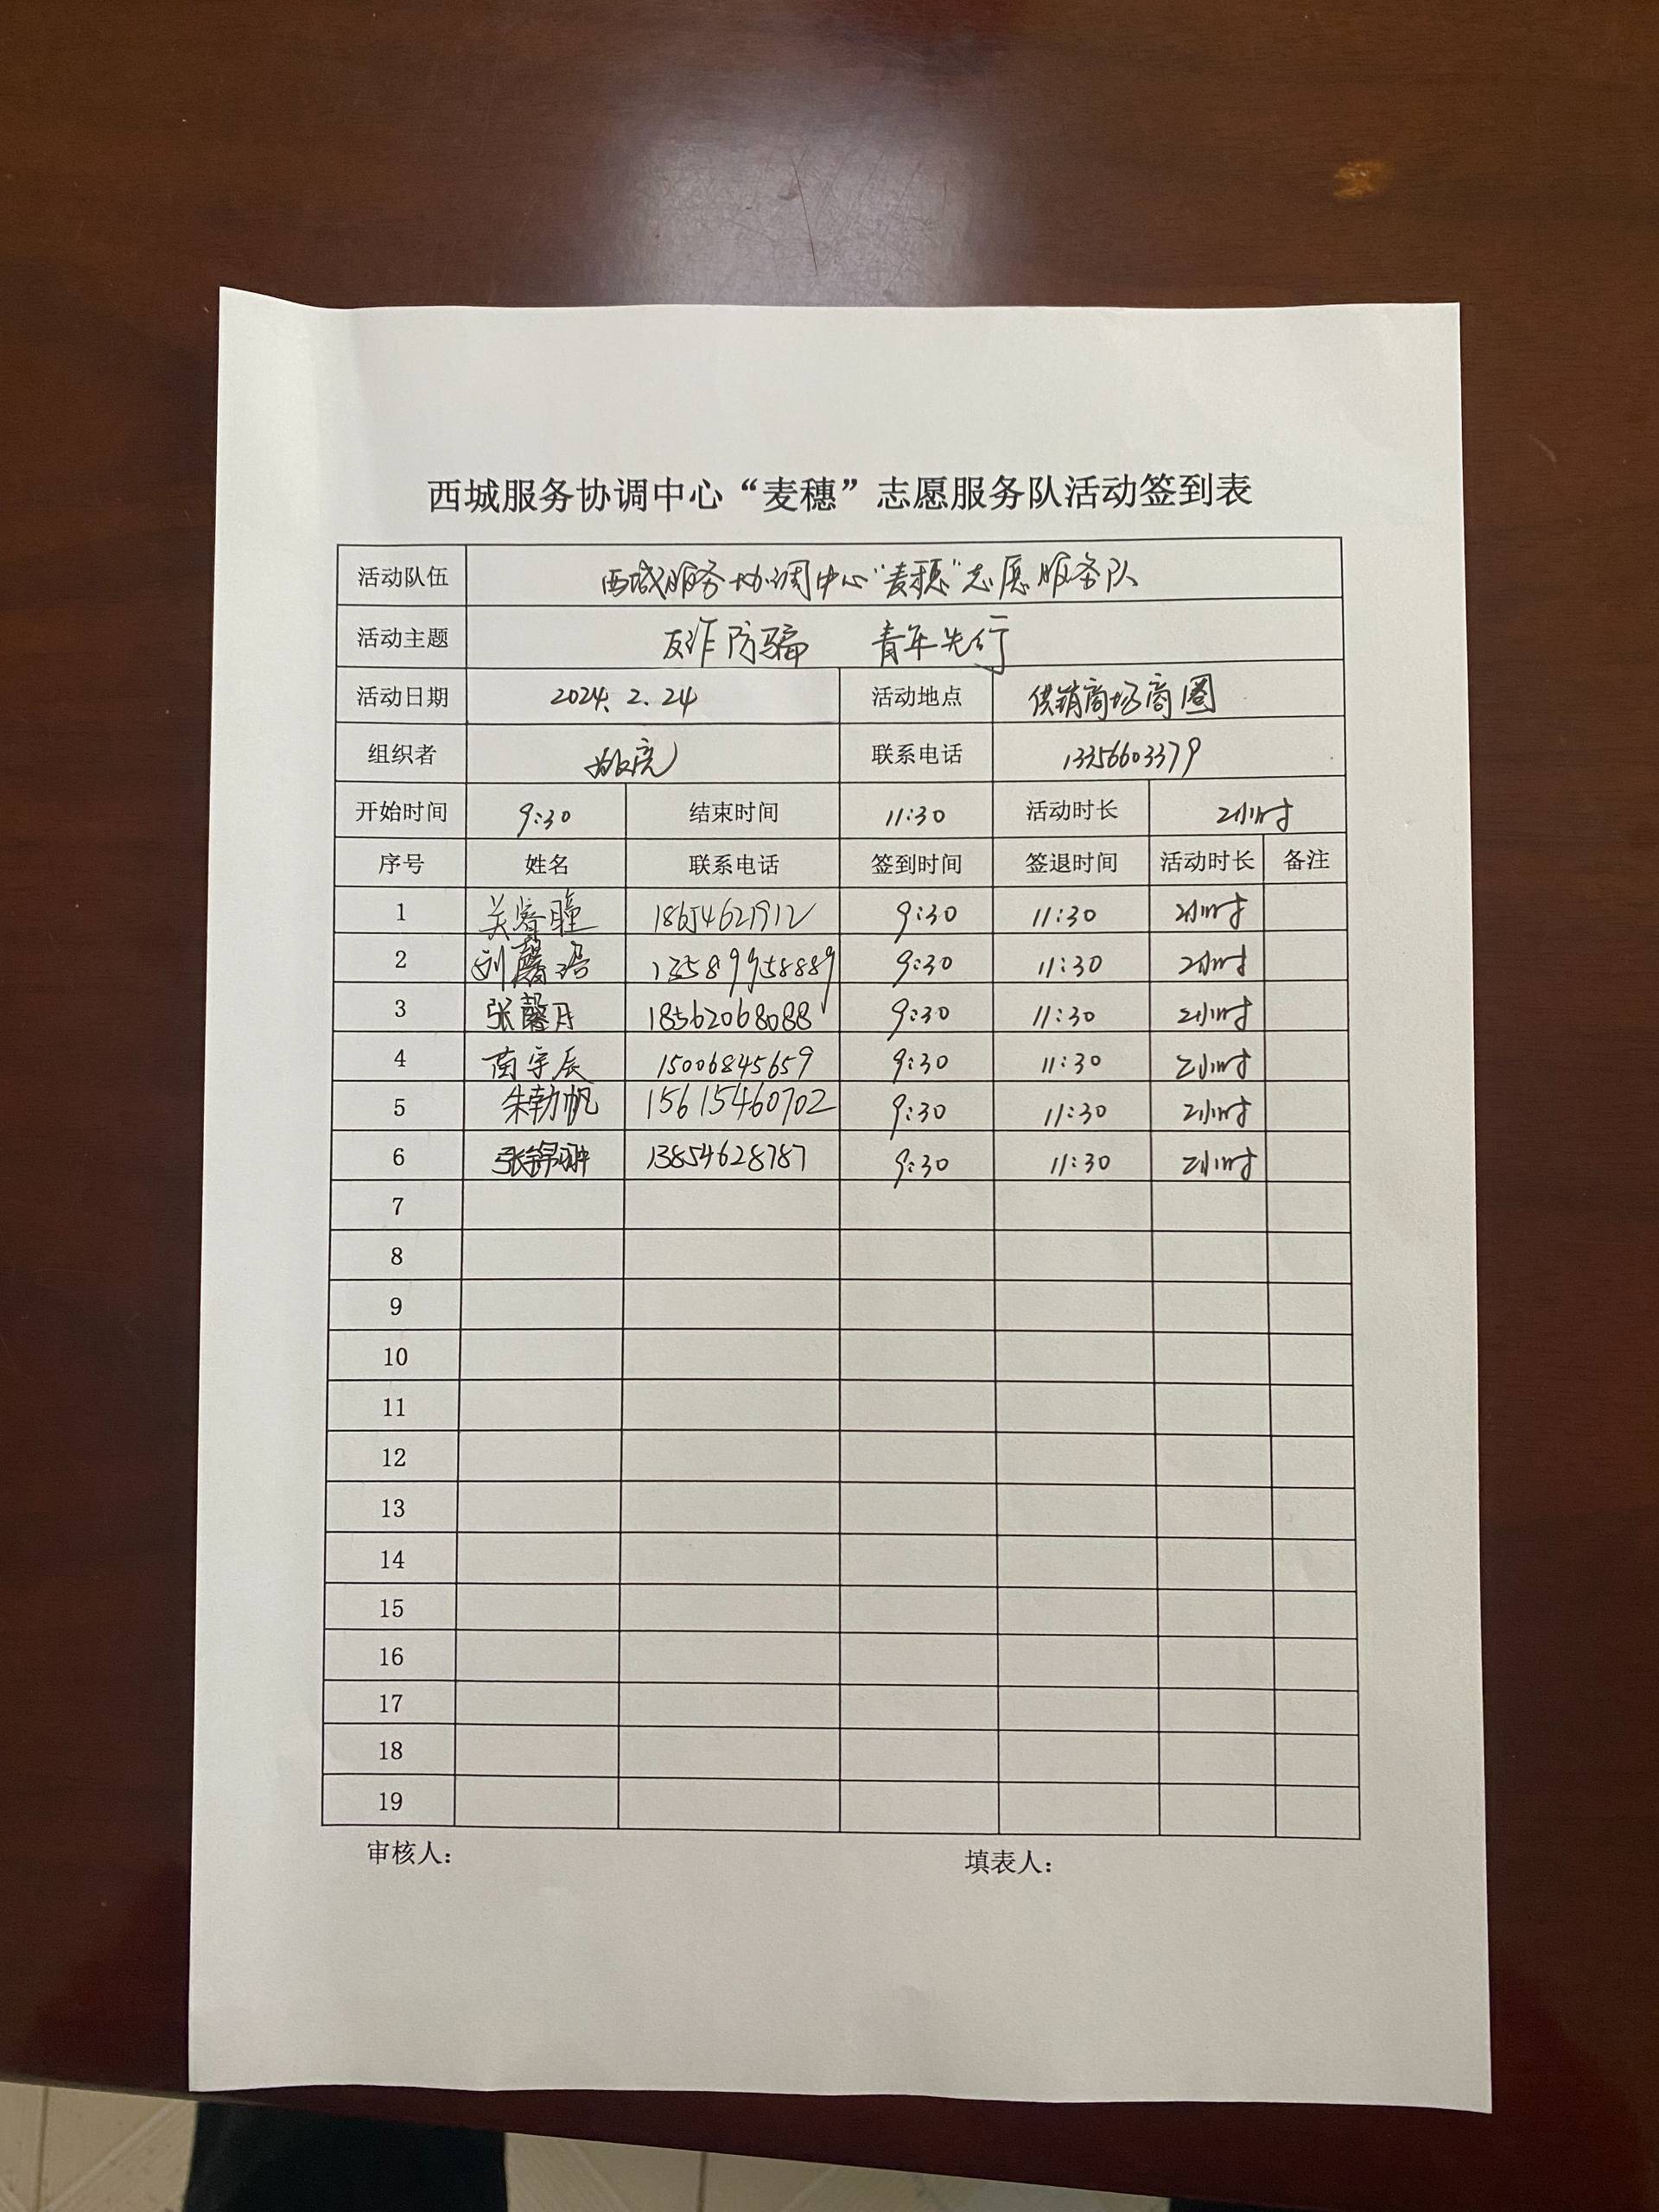 西城服务协调中心“麦穗”志愿服务队活动签到表
活动队伍 西城服务协调中心“麦穗”志愿服务队
活动主题 反诈防骗 青年先行
活动日期 2024.2.24 活动地点 供销商场商圈
组织者 联系电话 13356603379
开始时间 9:30 结束时间 11:30 活动时长 2小时
序号 姓名 联系电话 签到时间 签退时间 活动时长 备注
1 关睿瞳 18654621912 9:30 11:30 2小时
2 刘馨 13589958889 9:30 11:30 2小时
3 张馨月 18562068088 9:30 11:30 2小时
4 苗宇辰 15006845659 9:30 11:30 2小时
5 朱勃帆 15615460702 9:30 11:30 2小时
6 张锦翀 13854628787 9:30 11:30 2小时
7
8
9
10
11
12
13
14
15
16
17
18
19
审核人： 填表人：